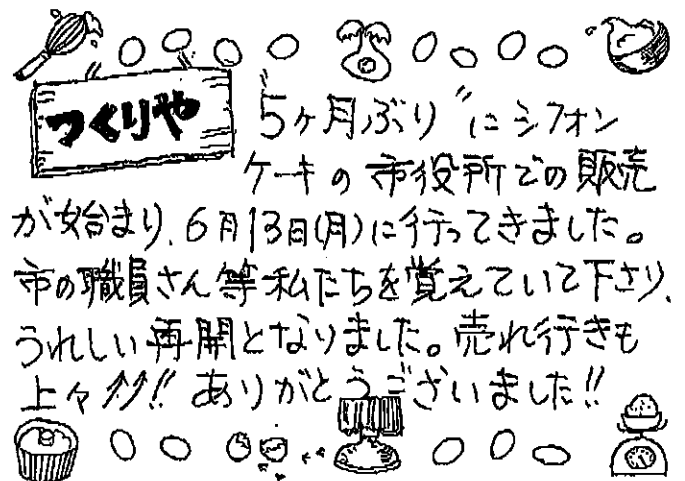 つくりや
"5ヶ月ぶり"にシフォン
ケーキの市役所での販売
が始まり、6月13日(月)に行ってきました。
市の職員さん等私たちを覚えていて下さり、
うれしい再開となりました。売れ行きも
上々⤴⤴!! ありがとうございました!!